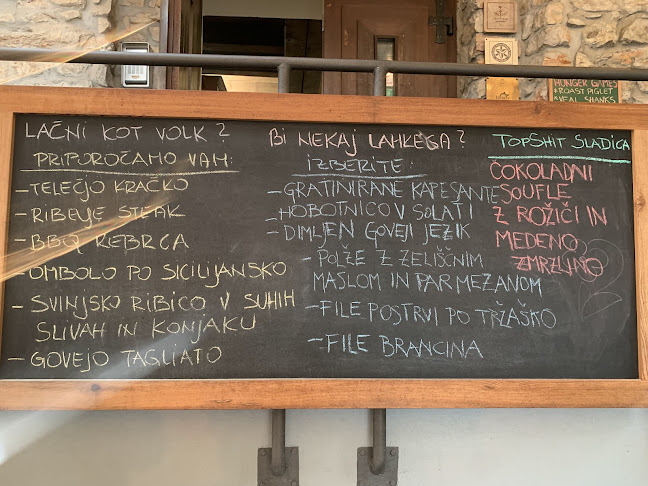 HUNGER GAMES
*ROAST PIGLET
*VEAL SHANKS
LAČNI KOT VOLK?
PRIPOROČAMO VAM:
- TELEČJO KRAČKO
- RIBEYE STEAK
- BBQ REBRCA
- OMBOLO PO SICILIJANSKO
- SVINJSKO RIBICO V SUHIH
SLIVAH IN KONJAKU
- GOVEJO TAGLIATO
BI NEKAJ LAHKEGA?
IZBERITE:
- GRATINIRANE KAPESANTE
- HOBOTNICO V SOLATI
- DIMLJEN GOVEJI JEZIK
- POLŽE Z ZELIŠČNIM
MASLOM IN PARMEZANOM
- FILE POSTRVI PO TRŽAŠKO
- FILE BRANCINA
TOPSHIT SLADICA
ČOKOLADNI
SOUFLE
Z ROŽIČI IN
MEDENO
ZMRZLINO